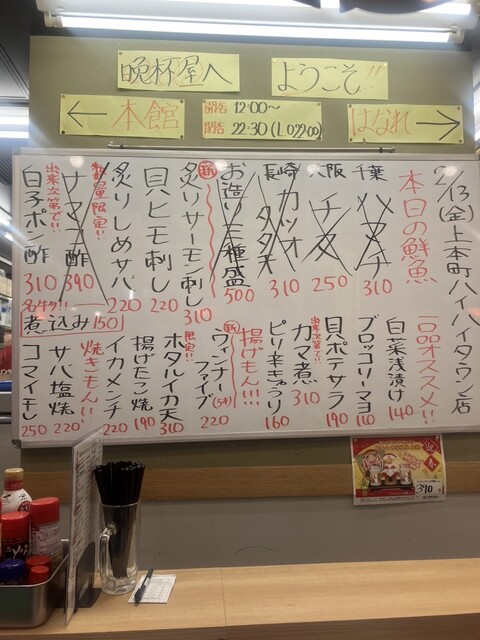 晩杯屋へ
ようこそ!!
← 本館
開店 12:00〜
閉店 22:30(L.O22:00)
はなれ →
2/13(金)上本町ハイハイタウン店
本日の鮮魚
千葉 ハマチ 310
大阪 チヌ 250
長崎 カツオタタキ 310
お造り三種盛 500
㊟ 炙りサーモン刺し 310
貝ヒモ刺し 220
炙りしめサバ 220
数量限定!!
サワラ酢 390
出来次第で!!
白子ポン酢 310
一品オススメ!!
白菜浅漬け 140
ブロッコリーマヨ 110
貝ポテサラ 190
出来次第で!!
カマ煮 310
ピリ辛きゅうり 160
揚げもん!!!
ウィンナーファイブ(5本) 220
限定!!
ホタルイカ天 310
揚げたこ焼 190
イカメンチ 220
焼きもん!!
サバ塩焼 220
名物!!
煮込み 150
コマイ一干し 250
390